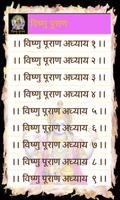 विष्णु पूराण
।। विष्णु पूराण अध्याय १ ।।
।। विष्णु पूराण अध्याय २ ।।
।। विष्णु पूराण अध्याय ३ ।।
।। विष्णु पूराण अध्याय ४ ।।
।। विष्णु पूराण अध्याय ५ ।।
।। विष्णु पूराण अध्याय ६ ।।
।। विष्णु पूराण अध्याय ७ ।।
।। विष्णु पूराण अध्याय ८ ।।
।। विष्णु पूराण अध्याय ९ ।।